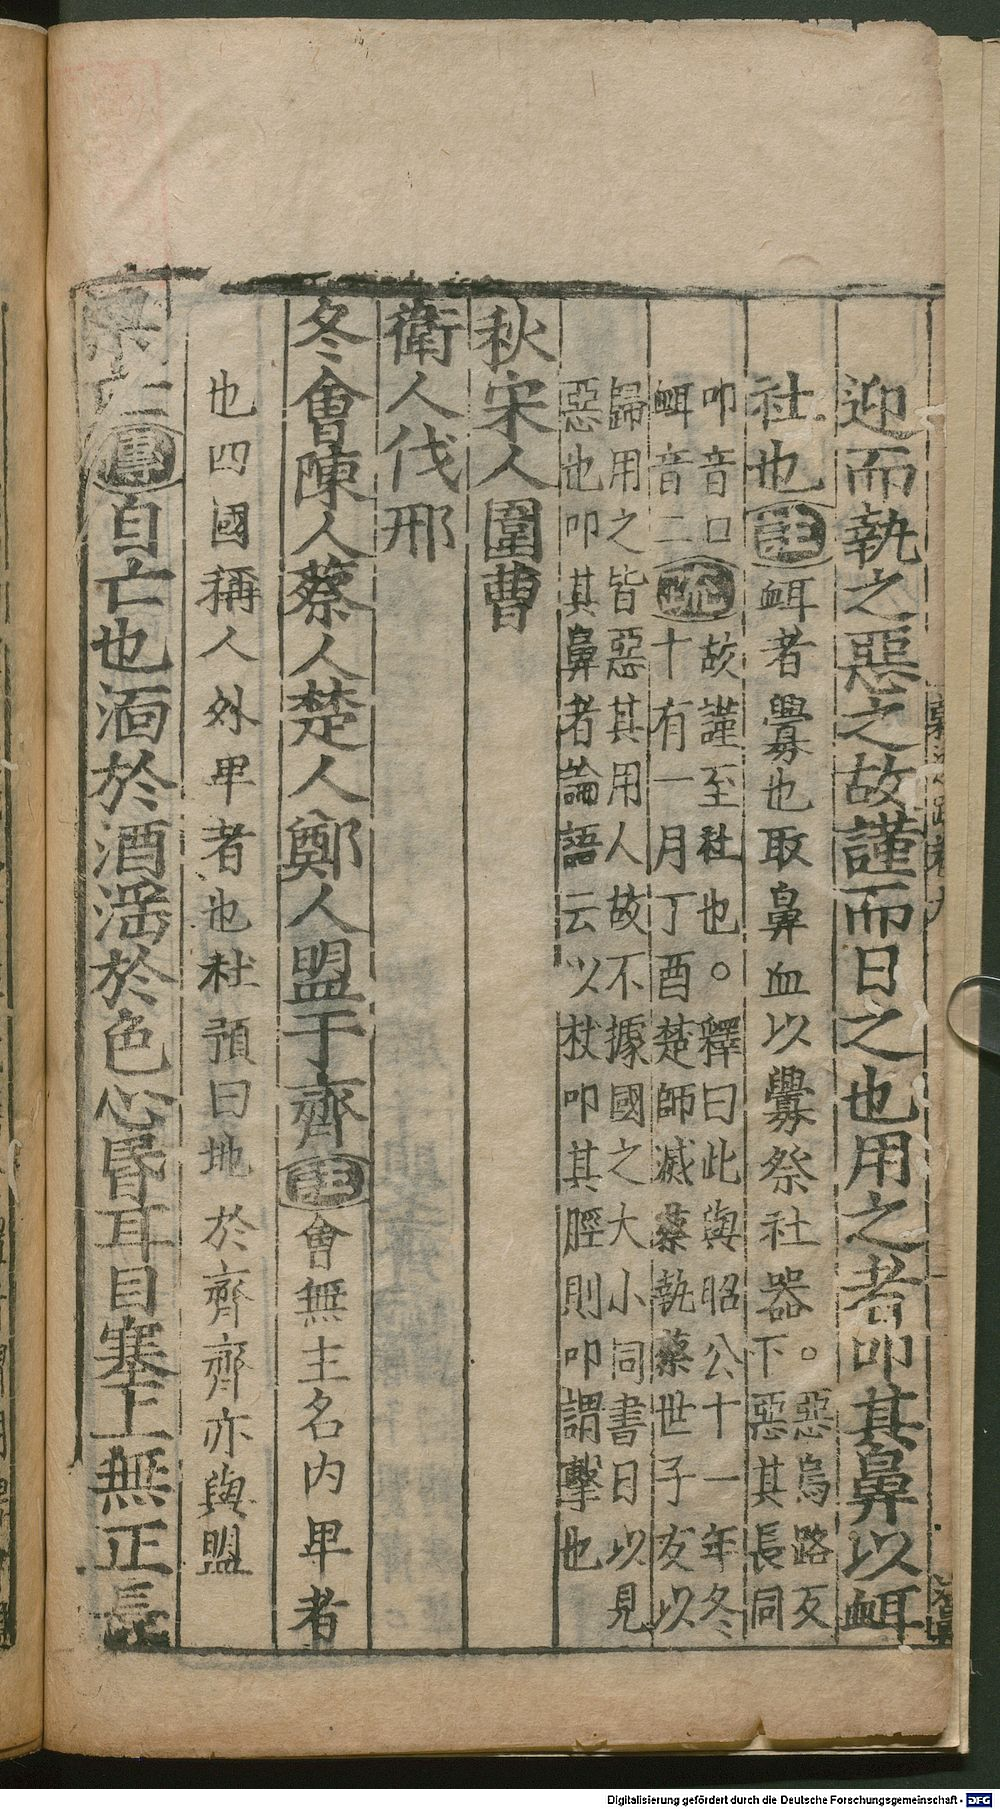 迎而執之惡之故謹而日之也用之者叩其鼻以衈
社也註衈者釁也取鼻血以釁祭社器。惡烏路反下惡其長同
叩音口衈音二疏故謹至社也。釋曰此與昭公十一年冬十有一月丁酉楚師滅蔡執蔡世子友以
歸用之皆惡其用人故不據國之大小同書日以見惡也叩其鼻者論語云以杖叩其脛則叩謂擊也
秋宋人圍曹
衛人伐邢
冬會陳人蔡人楚人鄭人盟于齊註會無主名內卑者
也四國稱人外卑者也杜預曰地於齊齊亦與盟
梁亡傳自亡也湎於酒淫於色心昬耳目塞上無正長
Digitalisierung gefördert durch die Deutsche Forschungsgemeinschaft - DFG